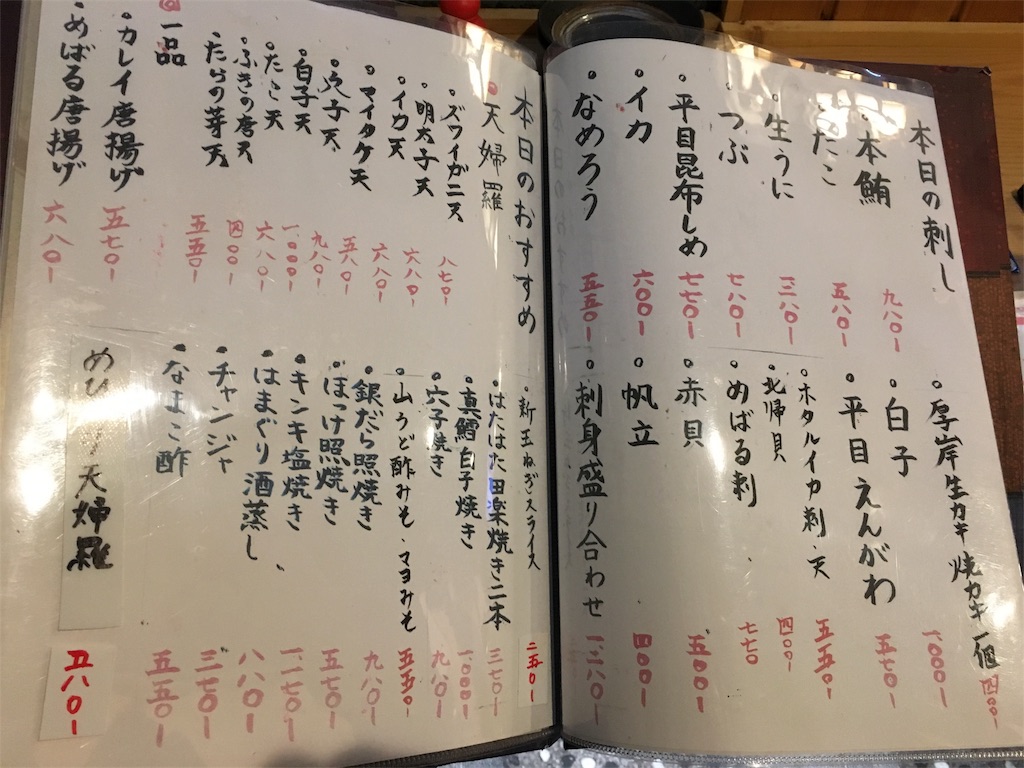 本日の刺し
・本鮪 九八〇-
・たこ 五八〇-
・生うに 一二八〇-
・つぶ 七八〇-
・平目昆布しめ 七七〇-
・イカ 六〇〇-
・なめろう 五五〇-
・厚岸生カキ 焼カキ 一個 四〇〇-
・白子 一〇〇〇-
・平目えんがわ 五七〇-
・ホタルイカ刺 天 五五〇-
・北帰貝 四〇〇-
・めばる刺 七七〇
・赤貝 五〇〇-
・帆立 四〇〇-
・刺身盛り合わせ 一二八〇-
本日のおすすめ
・天婦羅
・ズワイガニ天 八七〇-
・明太子天 六八〇-
・イカ天 六八〇-
・マイタケ天 五八〇-
・穴子天 九八〇-
・白子天 一〇〇〇-
・たこ天 六八〇-
・ふきの唐天 四〇〇-
・たらの芽天 五五〇-
@一品
・カレイ唐揚げ 五七〇-
・めばる唐揚げ 六八〇-
・新玉ねぎスライス 二五〇-
・はたはた田楽焼き二本 三七〇-
・真鱈白子焼き 一〇〇〇-
・穴子焼き 九八〇-
・山うど酢みそ・マヨみそ 五五〇-
・銀だら照焼き 九八〇-
・ほっけ照焼き 五七〇-
・キンキ塩焼き 一二七〇-
・はまぐり酒蒸し 八八〇-
・チャンジャ 三七〇-
・なまこ酢 五五〇-
天婦羅 五八〇-